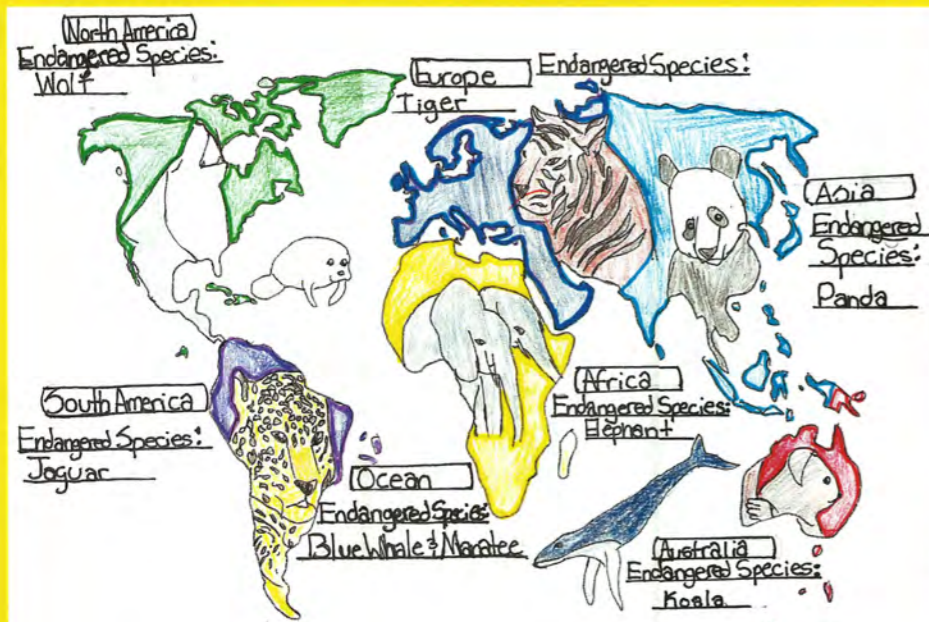 North America
Endangered Species:
Wolf
Europe
Endangered Species:
Tiger
Asia
Endangered
Species:
Panda
Africa
Endangered Species:
Elephant
South America
Endangered Species:
Jaguar
Ocean
Endangered Species:
Blue Whale & Manatee
Australia
Endangered Species:
Koala